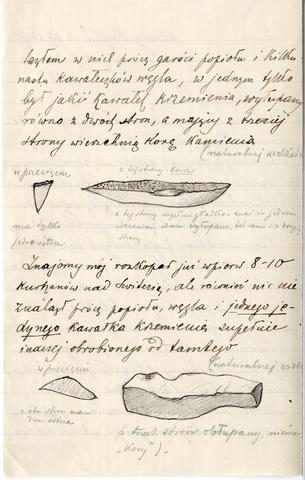 lazłem w nich prócz garści popiołu i kilku
nastu kawałeczków węgla, w jednym tylko
był jakiś kawałek krzemienia, wyłupany
równo z dwóch stron, a mający z trzeciej
strony wierzchnią korę kamienia
(naturalnej wielkości
w przecięciu
z tej strony kora
ma tylko
jedno ostrze
z tej strony zupełnie gładko
strony
Znajomy mój rozkopał już wpierw 8-10
kurhanów nad Świtezią, ale również nic nie
znalazł prócz popiołu, węgla i jednego je-
dynego kawałka krzemienia zupełnie
inaczej obrobionego od tamtego
(naturalnej wielk.
w przecięciu
z obu stron ma
ostrza
(z trzech stron obłupany, niema
„kory").